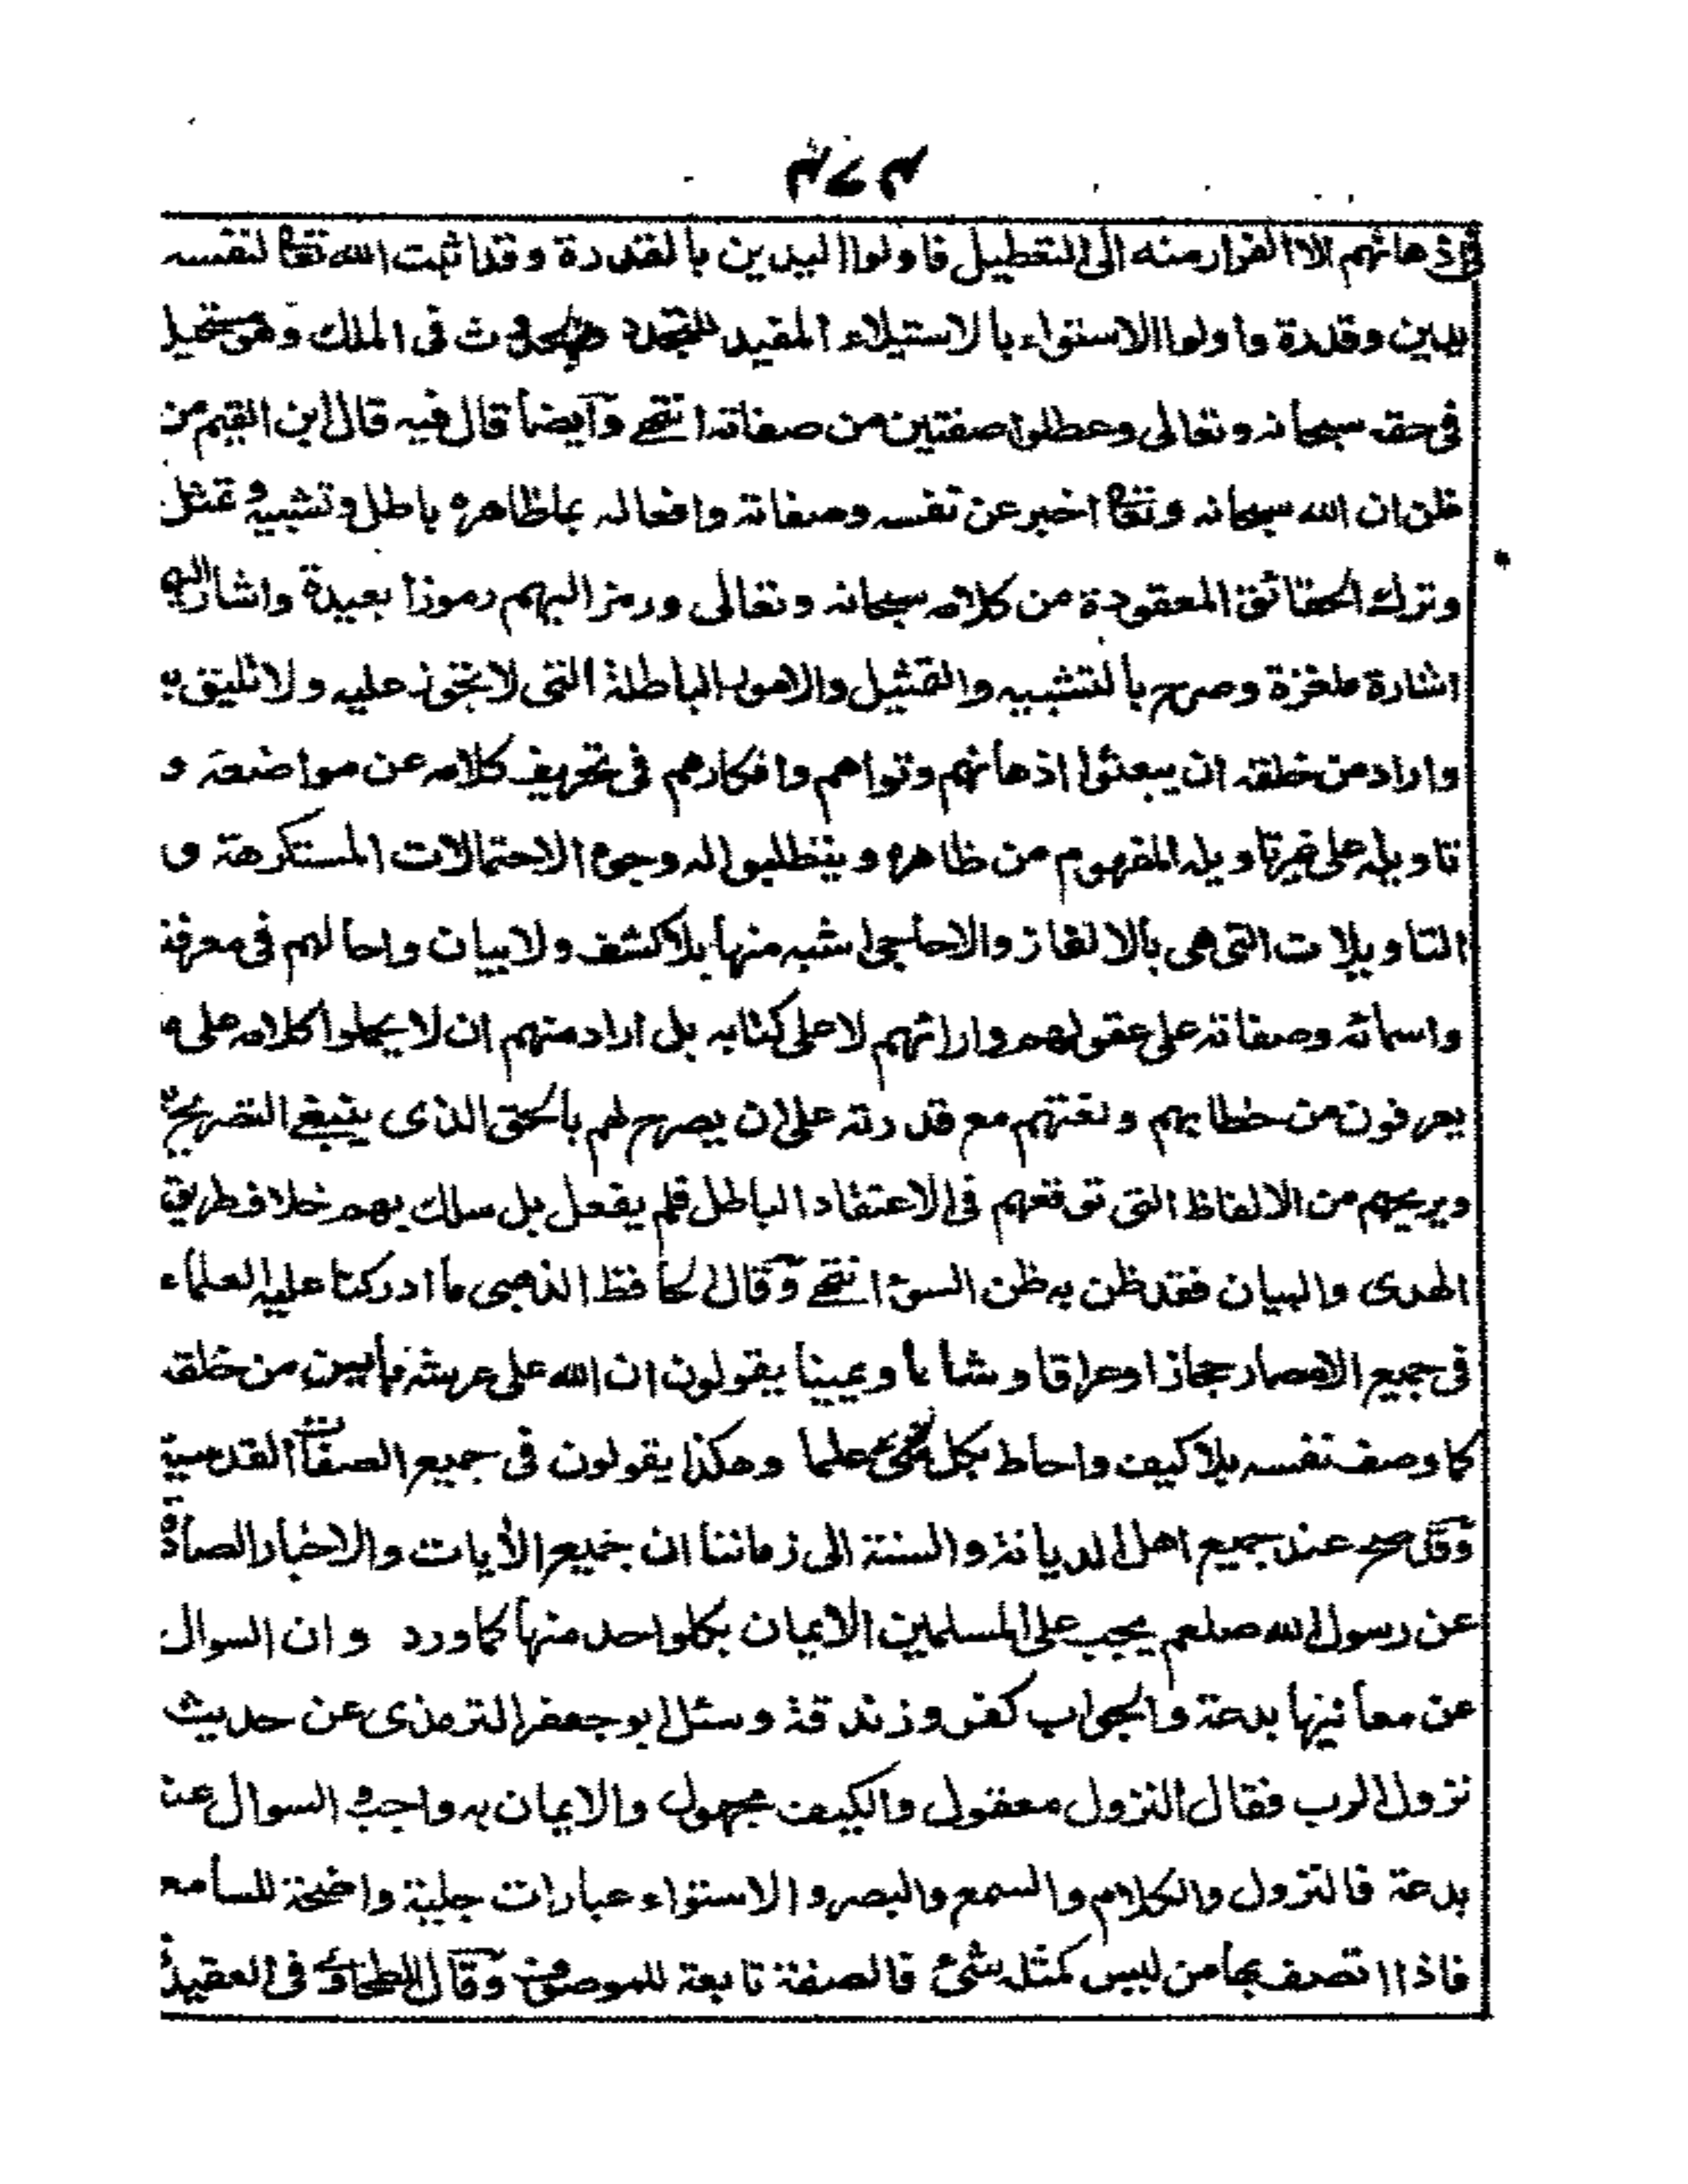 ۴۷۴
فى اذهانهم الا الفرار منه الى التعطيل فاولوا اليدين بالقدرة وقد اثبت الله تعا لنفسه
يدين وقدرة واولوا الاستواء بالاستيلاء المفيد للتجدد والحدوث فى الملك وهو مستحيل
فى حقه سبحانه وتعالى وعطلوا صفتين من صفاته انتهے وآيضا قال فيه قال ابن القيم من
ظن ان الله سبحانه وتعا اخبر عن نفسه وصفاته وافعاله بما ظاهره باطل وتشبيه وتمثل
وترك الحقائق المعقودة من كلامه سبحانه وتعالى ورمز اليهم رموزا بعيدة واشار اليه
اشارة ملغزة وصرح بالتشبيه والتمثيل والامور الباطلة التى لا يتجوز عليه ولا تليق به
واراد من خلقه ان يبعثوا اذهانهم وقواهم وافكارهم فى تحريف كلامه عن مواضعه و
تاويله على غير تاويله المفهوم من ظاهره ويتطلبوا له وجوه الاحتمالات المستكرهة و
التاويلات التى هى بالالغاز والاحاجى اشبه منها بلا كشف ولا بيان واحالهم فى معرفة
واسمائه وصفاته على عقولهم وارائهم لا على كتابه بل اراد منهم ان لا يحملوا كلامه على م
يعرفون من خطابهم ولغتهم مع قدرته على ان يصرح لهم بالحق الذى ينبغے التصريح
ويريحهم من الالفاظ التى توقعهم فى الاعتقاد الباطل فلم يفعل بل سلك بهم خلاف طريق
الهدى والبيان فقد ظن به ظن السوء انتهے وقال الحافظ الذهبى ما ادركنا عليه العلماء
فى جميع الامصار حجازا وعراقا وشاما ويمينا يقولون ان الله على عرشه بائن من خلقه
كما وصف نفسه بلا كيف واحاط بكل شئ علما وهكذا يقولون فى جميع الصفات القدسية
وقد صح عند جميع اهل الديانة والسنة الى زماننا ان جميع الأيات والاخبار الصادقة
عن رسول الله صلعم يجب على المسلمين الايمان بكلواحد منها كما ورد وان السوال
عن معانيها بدعة والجواب كفر وزندقة وسئل ابو جعفر الترمذى عن حديث
نزول الرب فقال النزول معقول والكيف مجهول والايمان به واجب والسوال عنه
بدعة فالنزول والكلام والسمع والبصر والاستواء عبارات جلية واضحة للسامع
فاذا اتصف بها من ليس كمثله شئ فالصفة تابعة للموصوف وقال الطحاوے فى العقيدة